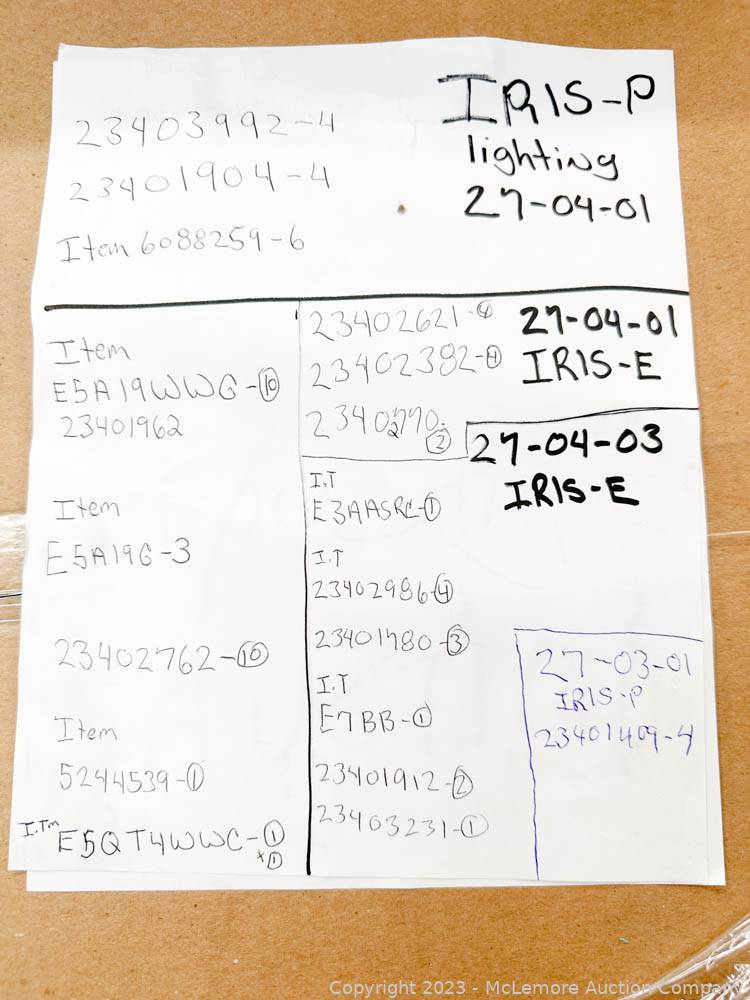 IRIS-P
lighting
27-04-01
23403992-4
23401904-4
Item 6088259-6
Item
E5A19WWG-10
23401962
Item
E5A19G-3
23402762-10
Item
5244539-1
I.Tm E5QT4WWC-1
x1
23402621-4
23402382-4
2
27-04-01
IRIS-E
27-04-03
IRIS-E
I.T
E3AASRC-1
I.T
23402986-4
23401780-3
I.T
E7BB-1
23401912-2
23403231-1
27-03-01
IRIS-P
23401409-4
Copyright 2023 - McLemore Auction Company